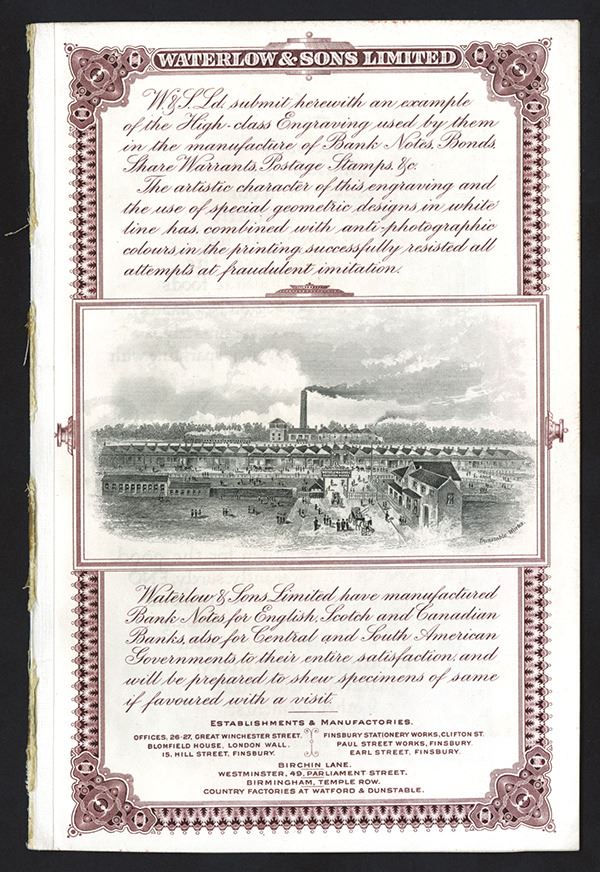 WATERLOW & SONS LIMITED
W. & S. Ld. submit herewith an example
of the High-class Engraving used by them
in the manufacture of Bank Notes, Bonds,
Share Warrants, Postage Stamps, &c.
The artistic character of this engraving and
the use of special geometric designs in white
line has, combined with anti-photographic
colours in the printing, successfully resisted all
attempts at fraudulent imitation.
Dunstable Works.
Waterlow & Sons Limited have manufactured
Bank Notes for English, Scotch and Canadian
Banks, also for Central and South American
Governments, to their entire satisfaction, and
will be prepared to shew specimens of same
if favoured with a visit.
ESTABLISHMENTS & MANUFACTORIES.
OFFICES, 26-27, GREAT WINCHESTER STREET.
BLOMFIELD HOUSE, LONDON WALL.
15, HILL STREET, FINSBURY.
FINSBURY STATIONERY WORKS, CLIFTON ST.
PAUL STREET WORKS, FINSBURY.
EARL STREET, FINSBURY.
BIRCHIN LANE.
WESTMINSTER, 49, PARLIAMENT STREET.
BIRMINGHAM, TEMPLE ROW.
COUNTRY FACTORIES AT WATFORD & DUNSTABLE.